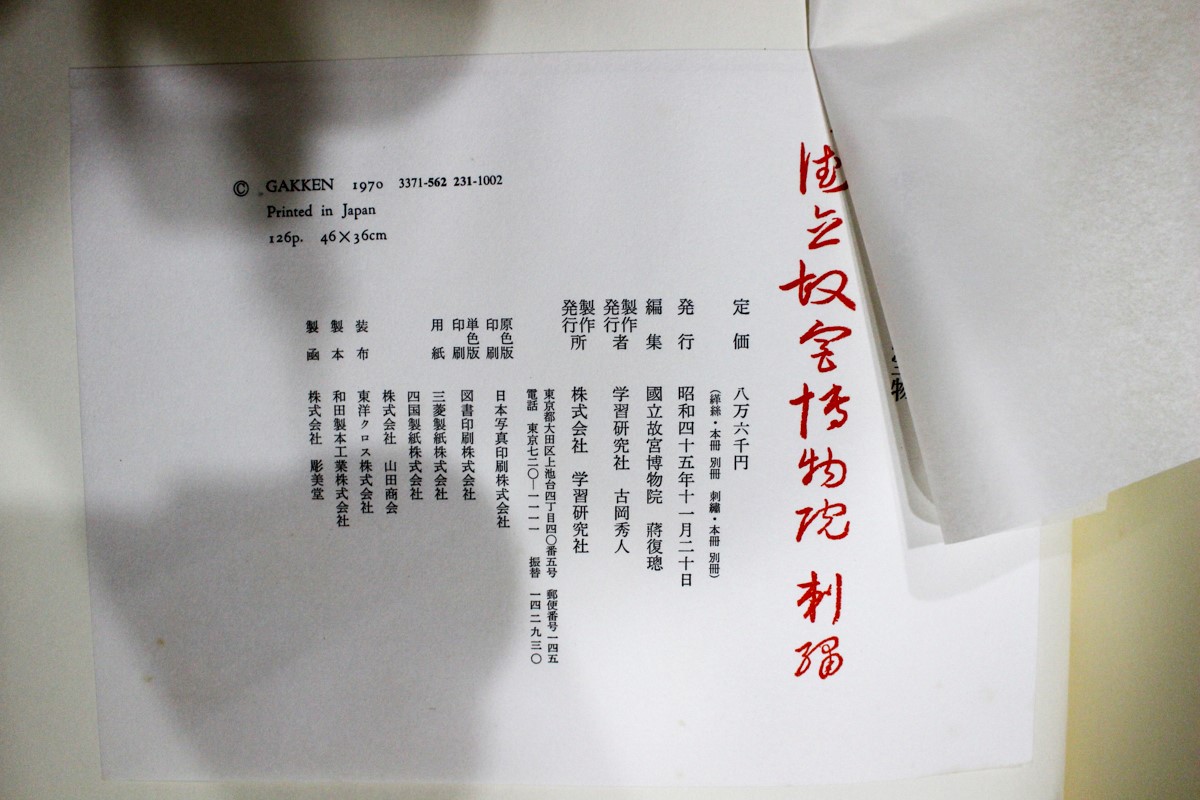 國立故宮博物院 刺繡
定価 八万六千円
(緙絲・本冊 別冊 刺繡・本冊 別冊)
発行 昭和四十五年十一月二十日
編集 國立故宮博物院 蔣復璁
製作発行者 学習研究社 古岡秀人
製作発行所 株式会社 学習研究社
東京都大田区上池台四丁目四〇番五号 郵便番号一四五
電話 東京七二〇―一一一一 振替 一四二九三〇
原色版印刷 日本写真印刷株式会社
単色版印刷 図書印刷株式会社
用紙 三菱製紙株式会社
四国製紙株式会社
株式会社 山田商会
装布 東洋クロス株式会社
製本 和田製本工業株式会社
製函 株式会社 彫美堂
© GAKKEN 1970 3371-562 231-1002
Printed in Japan
126p. 46×36cm